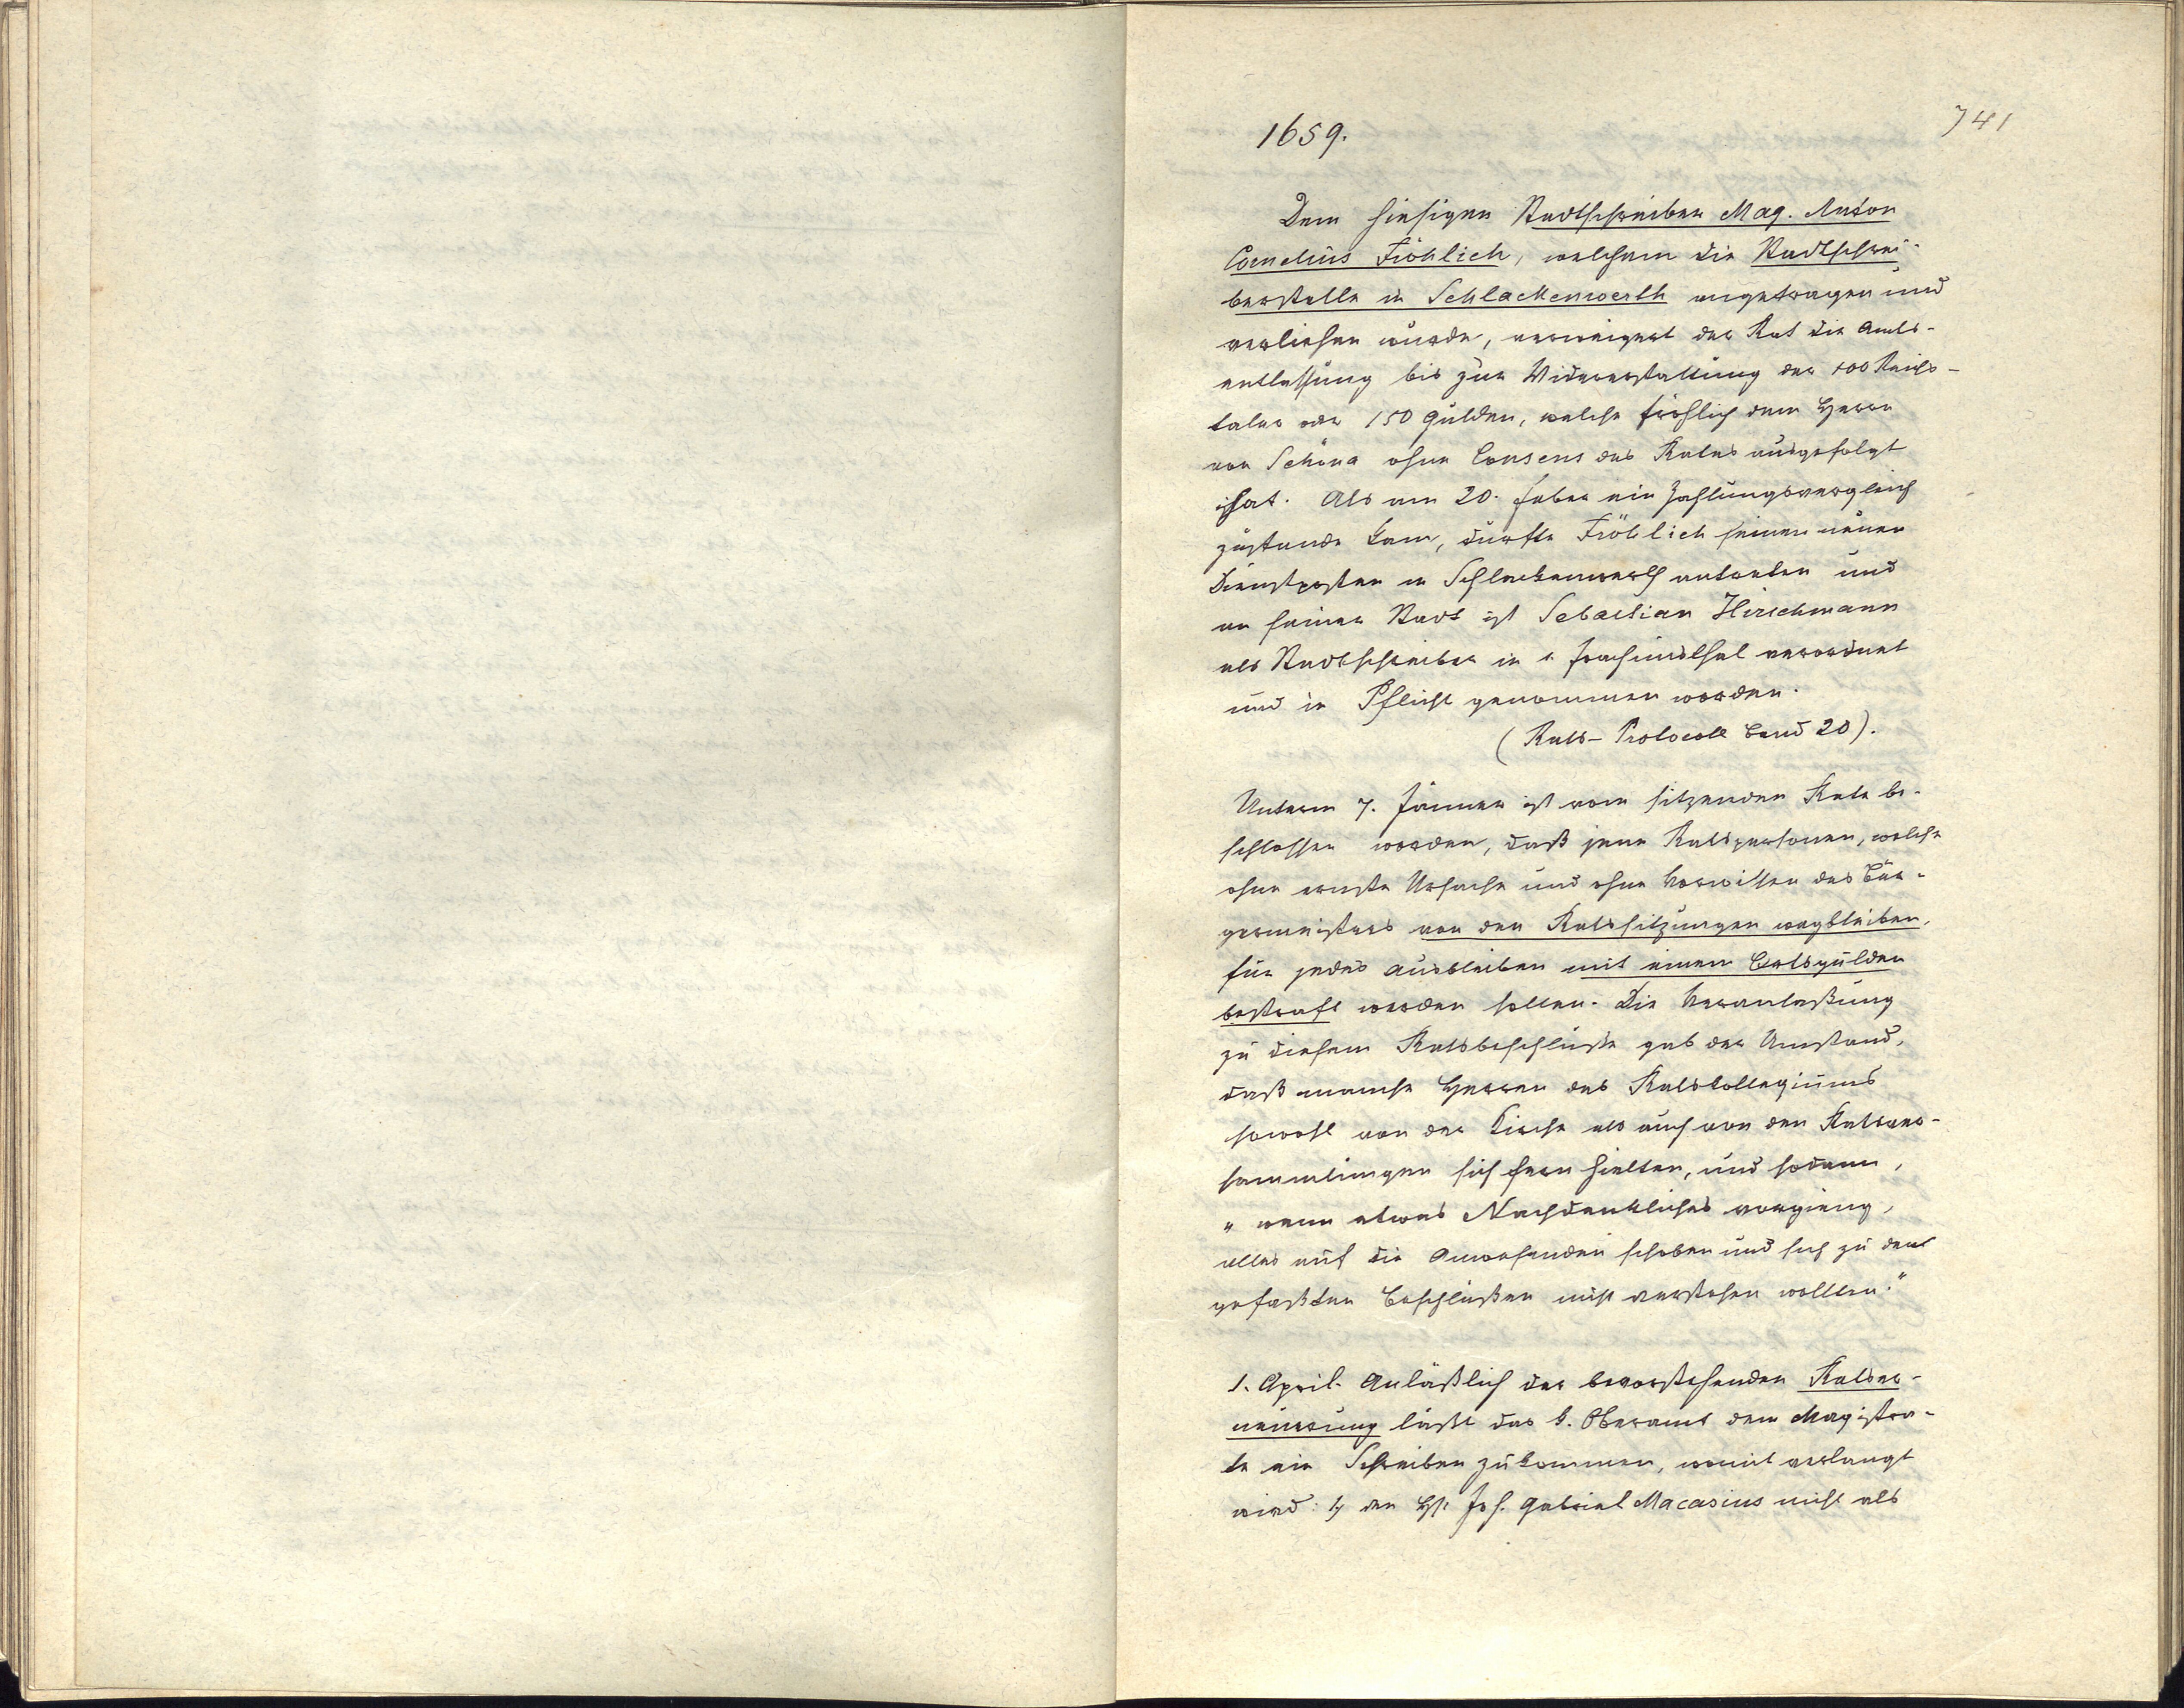 741
1659.
Dem hiesigen Stadtschreiber Mag. Anton
Cornelius Fröhlich, welchem die Stadtschrei-
berstelle in Schlackenwerth angetragen und
verliehen wurde, verweigert der Rat die Amts-
entlassung bis zur Widererstattung der 100 Reichs-
taler oder 150 Gulden, welche Fröhlich dem Herrn
von Schöna ohne Consens des Rates ausgefolgt
hat. Als am 20. Feber ein Zahlungsvergleich
zustande kam, durfte Fröhlich seinen neuen
Dienstposten in Schlackenwerth antreten und
an seiner Stadt ist Sebastian Hirschmann
als Stadtschreiber in Joachimsthal verordnet
und in Pflicht genommen worden.
(Rats-Protocoll Band 20).
Unterm 7. Jänner ist vom sitzenden Rate be-
schlossen worden, daß jene Ratspersonen, welche
ohne ernste Ursache und ohne Vorwissen des Bür-
germeisters von den Ratssitzungen wegbleiben,
für jedes Ausbleiben mit einem Ortsgulden
bestraft werden sollen. Die Veranlaßung
zu diesem Ratsbeschluße gab der Umstand,
daß manche Herren des Ratskollegiums
sowohl von der Kirche als auch von den Ratsver-
sammlungen sich fern hielten, und sodann,
"wenn etwas Nachdenkliches vorgieng,
alles auf die Anwesenden schoben und sich zu den
gefaßten Beschlüßen nicht verstehen wollten."
1. April. Anläßlich der bevorstehenden Ratser-
neuerung läßt das k. Oberamt dem Magistra-
te ein Schreiben zukommen, womit verlangt
wird: 1) den H. Joh. Gabriel Macasius nicht als